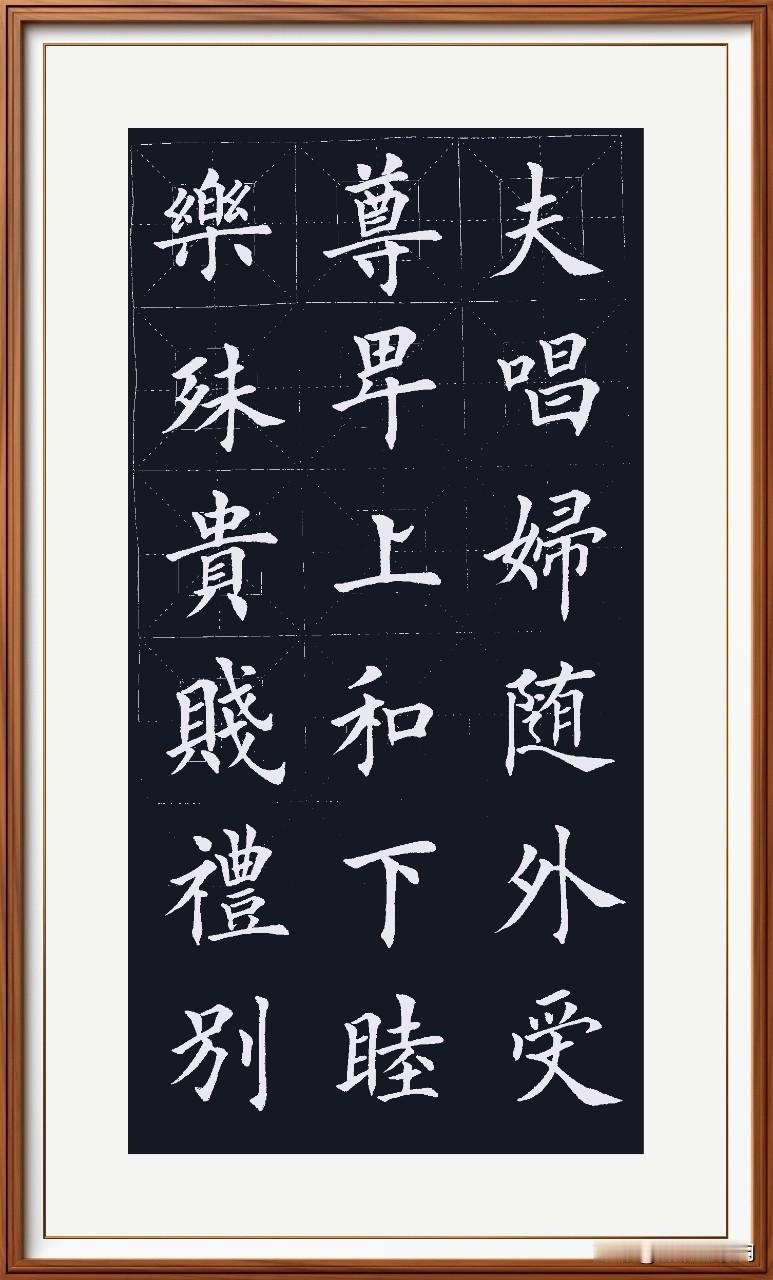 樂殊貴賤禮別
尊卑上和下睦
夫唱婦随外受